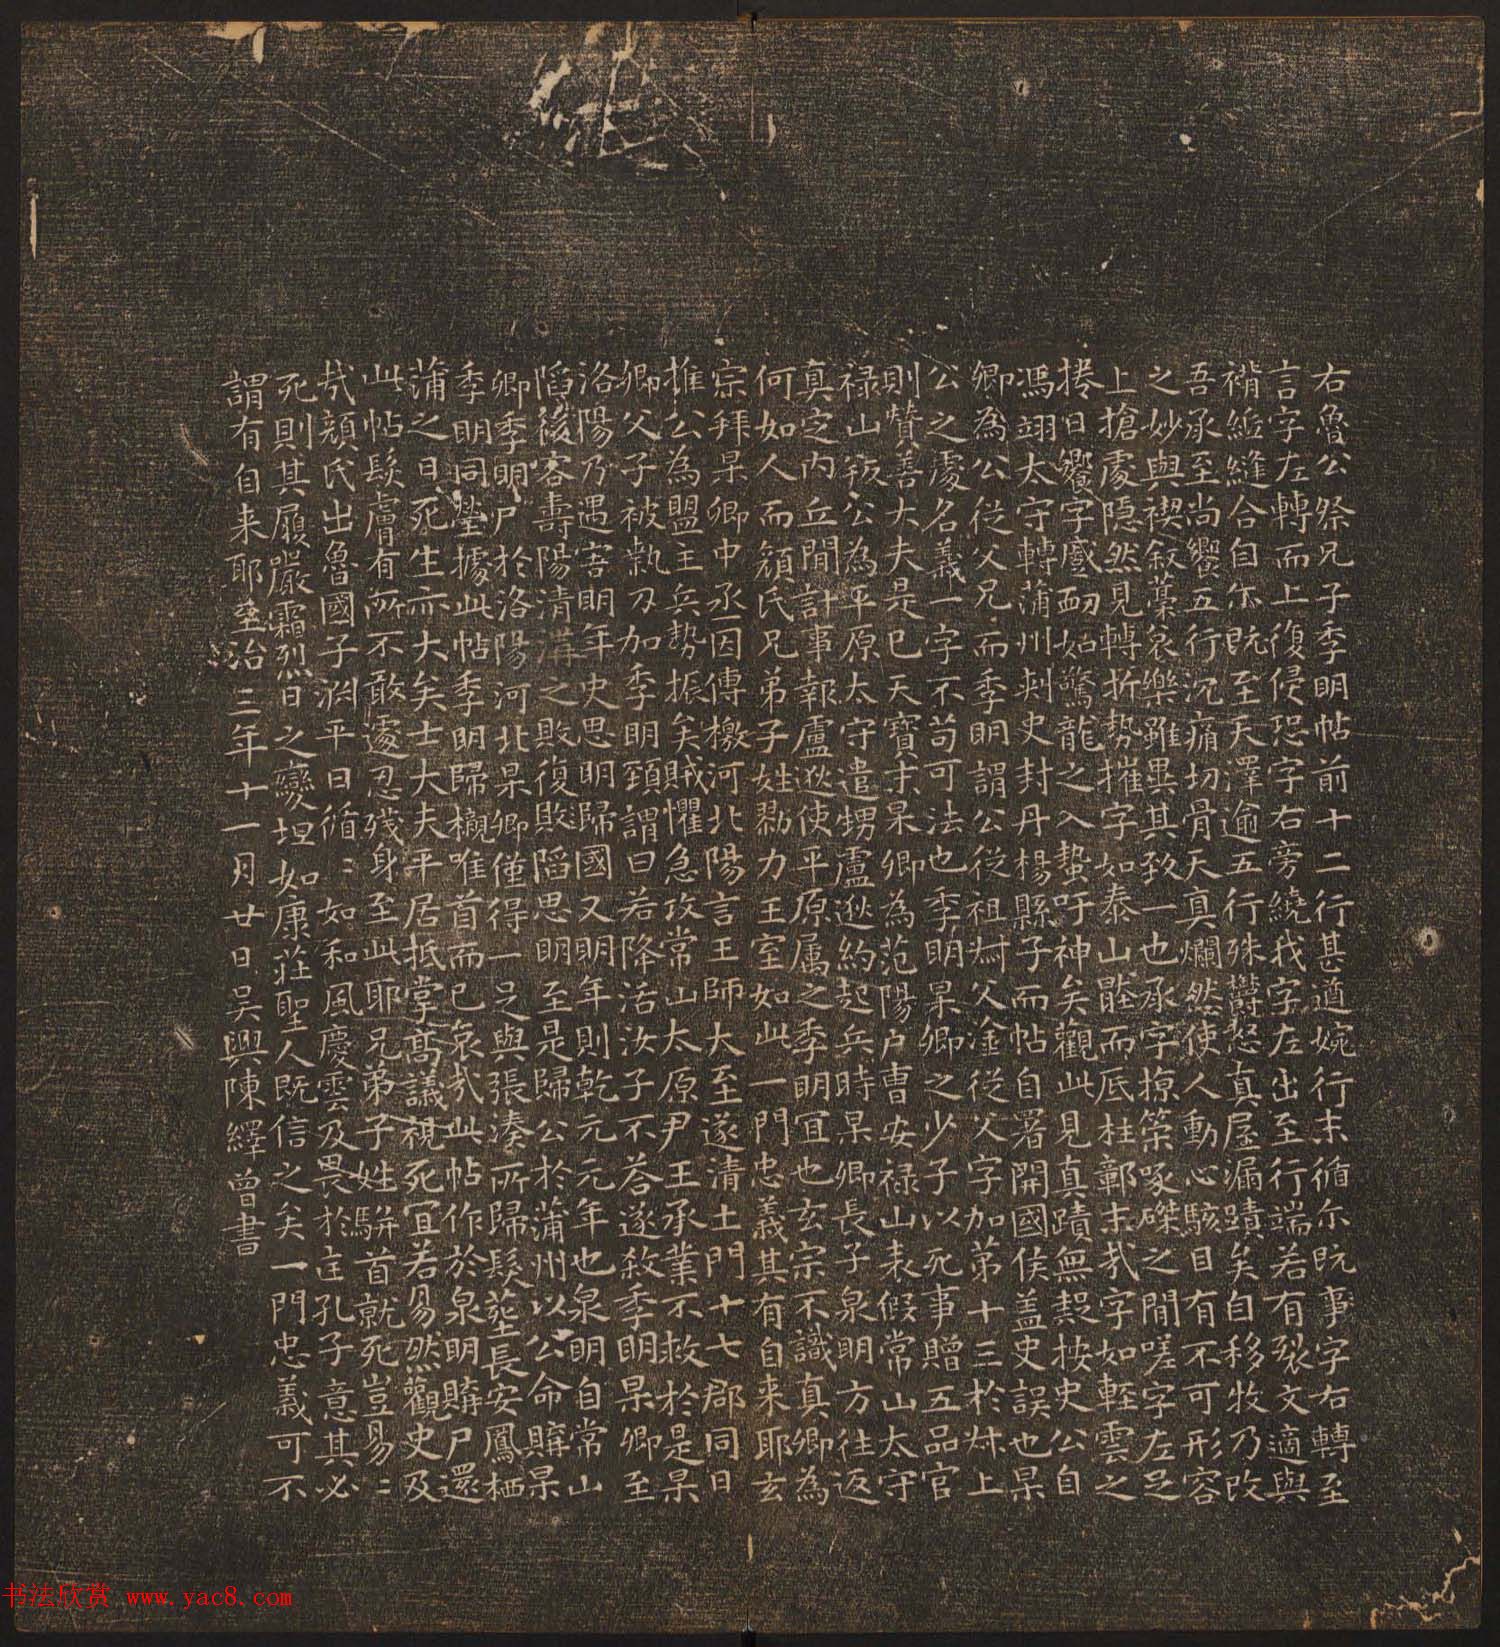 右魯公祭兄子季明帖前十二行甚遒婉行末循尓既事字右轉至
言字左轉而上復侵恐字右旁繞我字左出至行端若有裂文適與
褙䋎縫合自尓既至天澤逾五行殊欝怒真屋漏蹟矣自移牧乃改
吾承至尚饗五行沉痛切骨天真爛然使人動心駭目有不可形容
之妙與禊叙藁哀樂雖異其致一也承字掠策啄磔之閒嗟字左足
上搶處隱然見轉折勢摧字如泰山壓而底柱鄣末哉字如輕雲之
捲日饗字蹙衂如驚龍之入蟄吁神矣觀此見真蹟無疑按史公自
馮翊太守轉蒲州刺史封丹楊縣子而帖自署開國侯盖史誤也杲
卿為公從父兄而季明謂公從祖叔父淦從父字加第十三於叔上
公之處名義一字不苟可法也季明杲卿之少子以死事贈五品官
則贊善大夫是已天寶末杲卿為范陽户曹安禄山表假常山太守
禄山叛公為平原太守遣甥盧逖約起兵時杲卿長子泉明方往返
真定内丘閒計事報盧逖使平原属之季明宜也玄宗不識真卿為
何如人而顔氏兄弟子姓勠力王室如此一門忠義其有自来耶玄
宗拜杲卿中丞因傳檄河北陽言王師大至遂清土門十七郡同日
推公為盟主兵勢振矣賊懼急攻常山太原尹王承業不救於是杲
卿父子被執刃加季明頸謂曰若降活汝子不荅遂殺季明杲卿至
洛陽乃遇害明年史思明歸國又明年則乾元元年也泉明自常山
陷後客壽陽清溝之敗復敗陷思明至是歸公於蒲州以公命購杲
卿季明尸於洛陽河北杲卿僅得一足與張湊所歸髮塟長安鳳栖
季明同塋據此帖季明歸櫬唯首而已哀哉此帖作於泉明購尸還
蒲之日死生亦大矣士大夫平居抵掌高議視死宜若易然觀史及
此帖髮膚有所不敢遽忍殘身至此耶兄弟子姓駢首就死豈易〻
哉顔氏出魯國子淵平日循〻如和風慶雲及畏於匡孔子意其必
死則其履嚴霜烈日之變坦如康莊聖人既信之矣一門忠義可不
謂有自来耶至治三年十一月廿日吴興陳繹曾書
书法欣赏 www.yac8.com